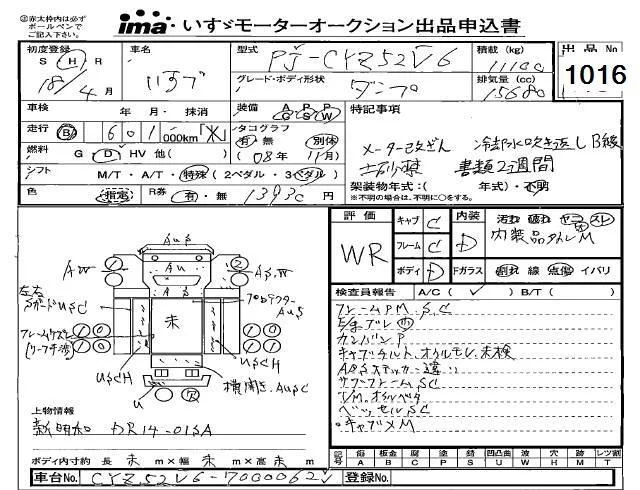 ㊟赤太枠内は必ず ボールペンで ご記入下さい。
ima いすゞモーターオークション出品申込書
出品No 1016
初度登録 S H R 18年 4月
車名 いすゞ
型式 PJ-CYZ52V6
積載 (kg) 11100
グレード・ボディ形状 ダンプ
排気量 (cc) 15680
車検 年・月・抹消
装備 A C P G P S W
特記事項
走行 B 601,000km「メ」
タコグラフ 有 無 別体 (08年 11月)
メーター改ざん 冷却水吹き返し B級
燃料 G D HV 他( )
土砂禁 書類2週間
シフト M/T・A/T・特殊 (2ペダル・3ペダル)
架装物年式:( 年式)・不明
※不明の場合は、不明に○をする。
色 指定
R券 有・無 1393C 円
評価 WR
キャブ C 内装 D 汚れ 破れ ヤコゲ スレ
フレーム C 内装品タオレM
ボディ D Fガラス 割れ 線 点傷 イバリ
検査員報告 A/C( ✓ ) B/T( )
フレームPM, S,C
E/gブレ 中
カンバンP
キャブチルト、オイルモレ、未検
ABSステッカー違い
サブフレームSC
T/M, オイル
ベッセルSC
・キャブメM
AUS
AU
1
2
AW
AS,W
左右 Sガード USC
プロテクター AUS
未
フレームサビ
10
10
10
10
USCH
USCH
U
横開き、AUSC
上物情報
新明和 DR14-01SA
ボディ内寸約 長 未 m×幅 未 m×高 未 m
記号 傷 A 板金 B 腐 C 塗 P 錆 S 凹凸曲 U 波 W 穴 H 跡 M レンズ割 T
車台No. CYZ52V6-7000062
登録No.